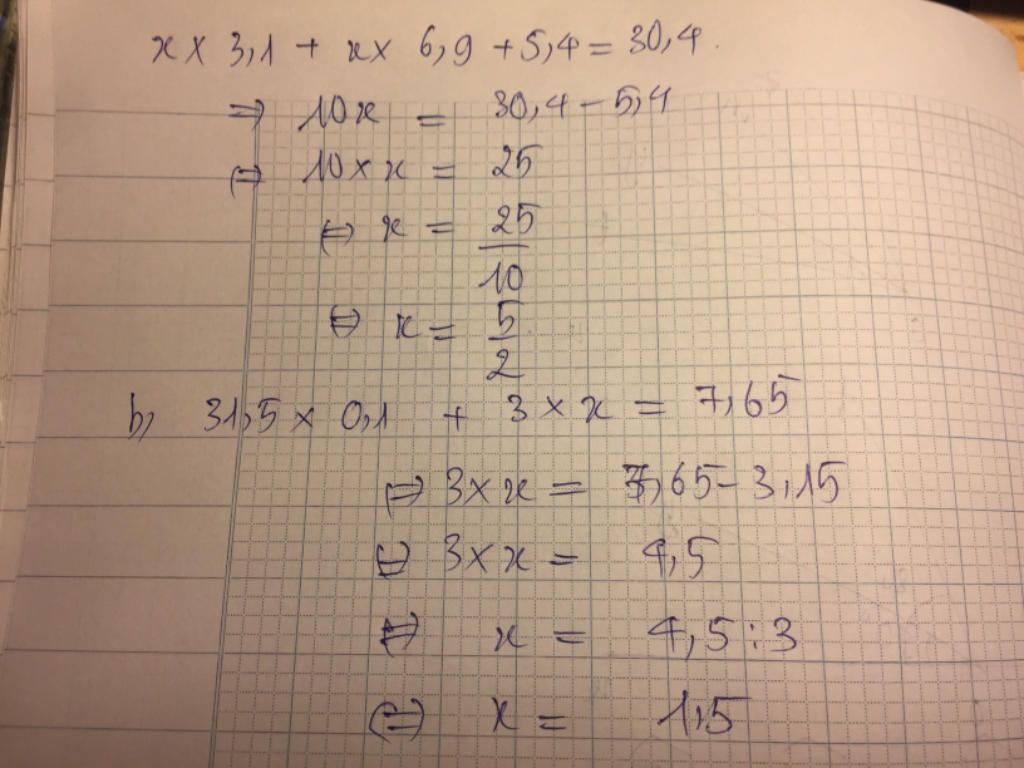 x × 3,1 + x × 6,9 + 5,4 = 30,4.
⇒ 10x = 30,4 - 5,4
⇔ 10 × x = 25
⇔ x = 25/10
⇔ x = 5/2
b, 31,5 × 0,1 + 3 × x = 7,65
⇔ 3 × x = 7,65 - 3,15
⇔ 3 × x = 4,5
⇔ x = 4,5 : 3
⇔ x = 1,5